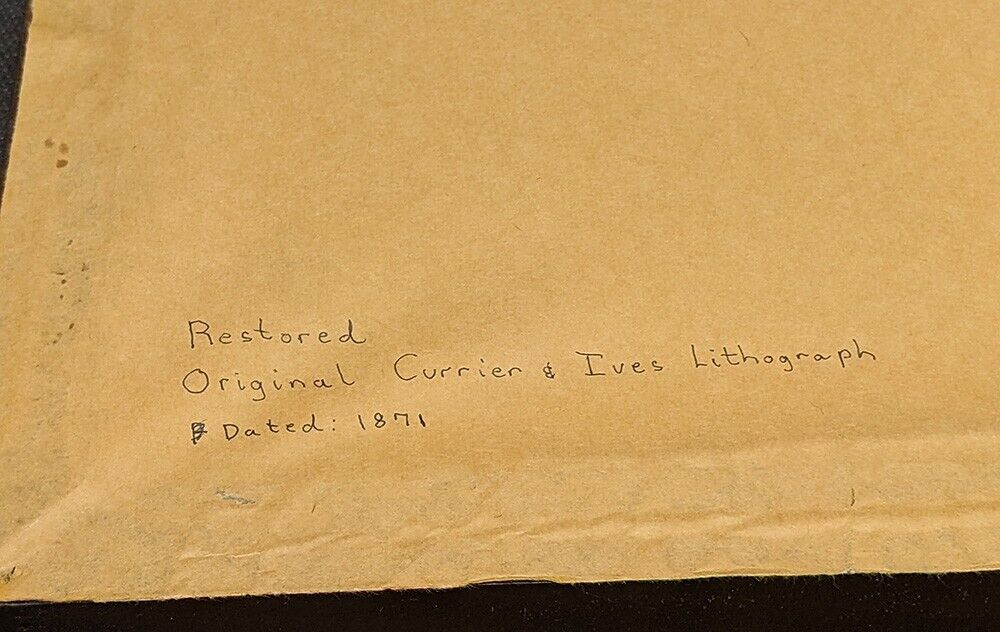 Restored
Original Currier & Ives Lithograph
Dated: 1871